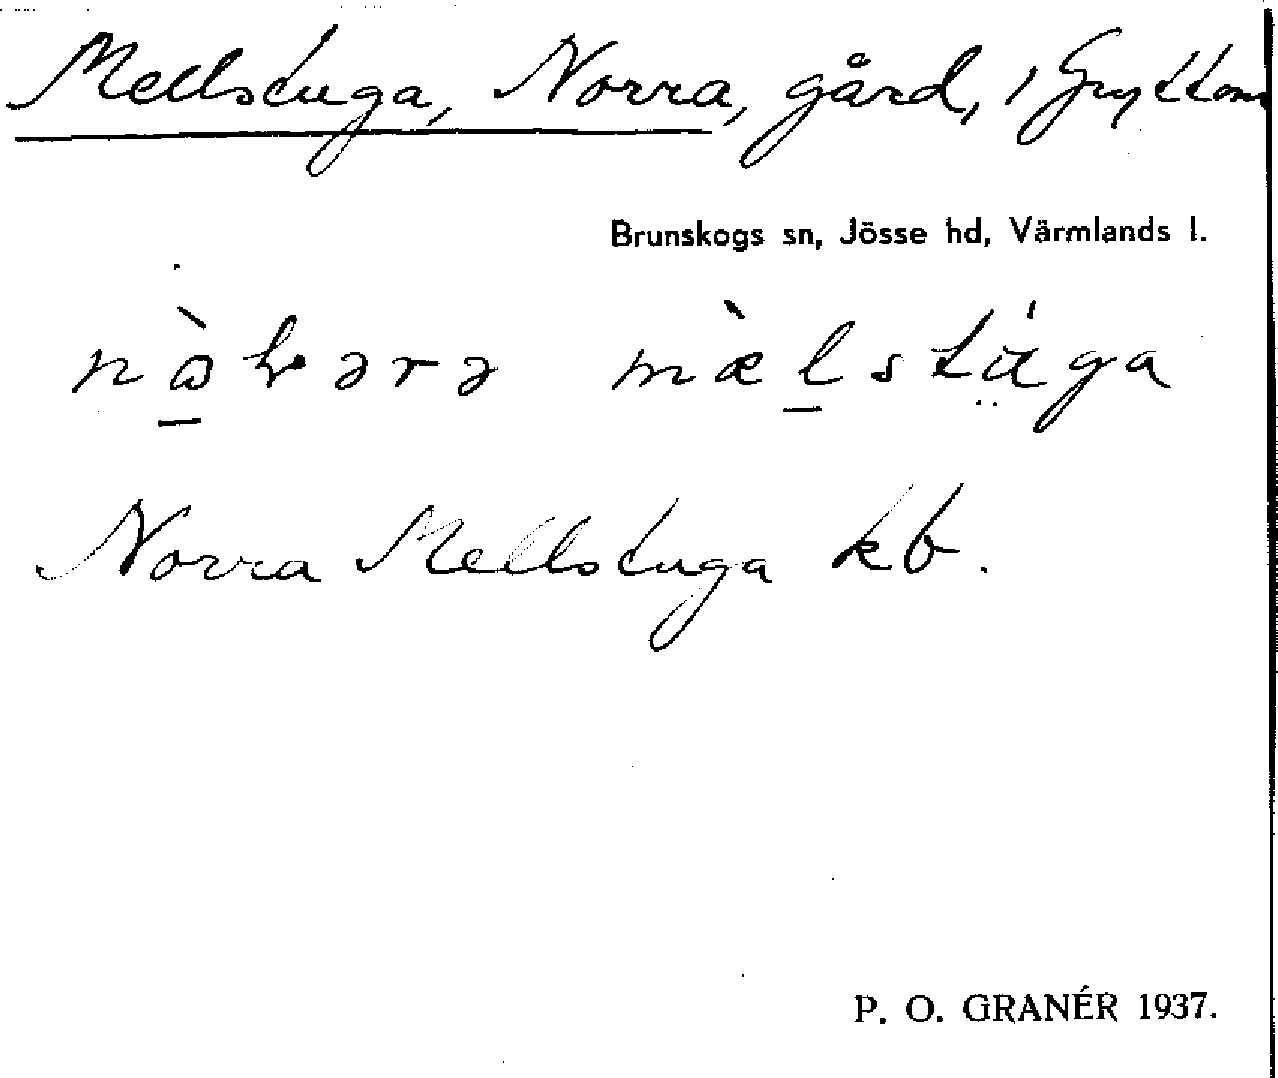 Mellstuga, Norra, gård, i Gryttom
Brunskogs sn, Jösse hd, Värmlands l.
mæ̀lstúga
Norra Mellstuga kb.
P. O. GRANÉR 1937.